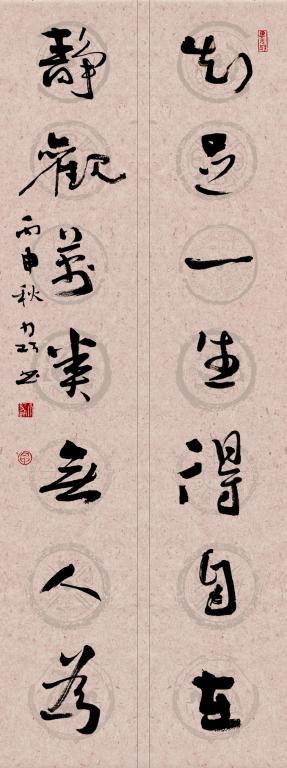 知足一生得自在
靜觀萬类無人為
丙申秋